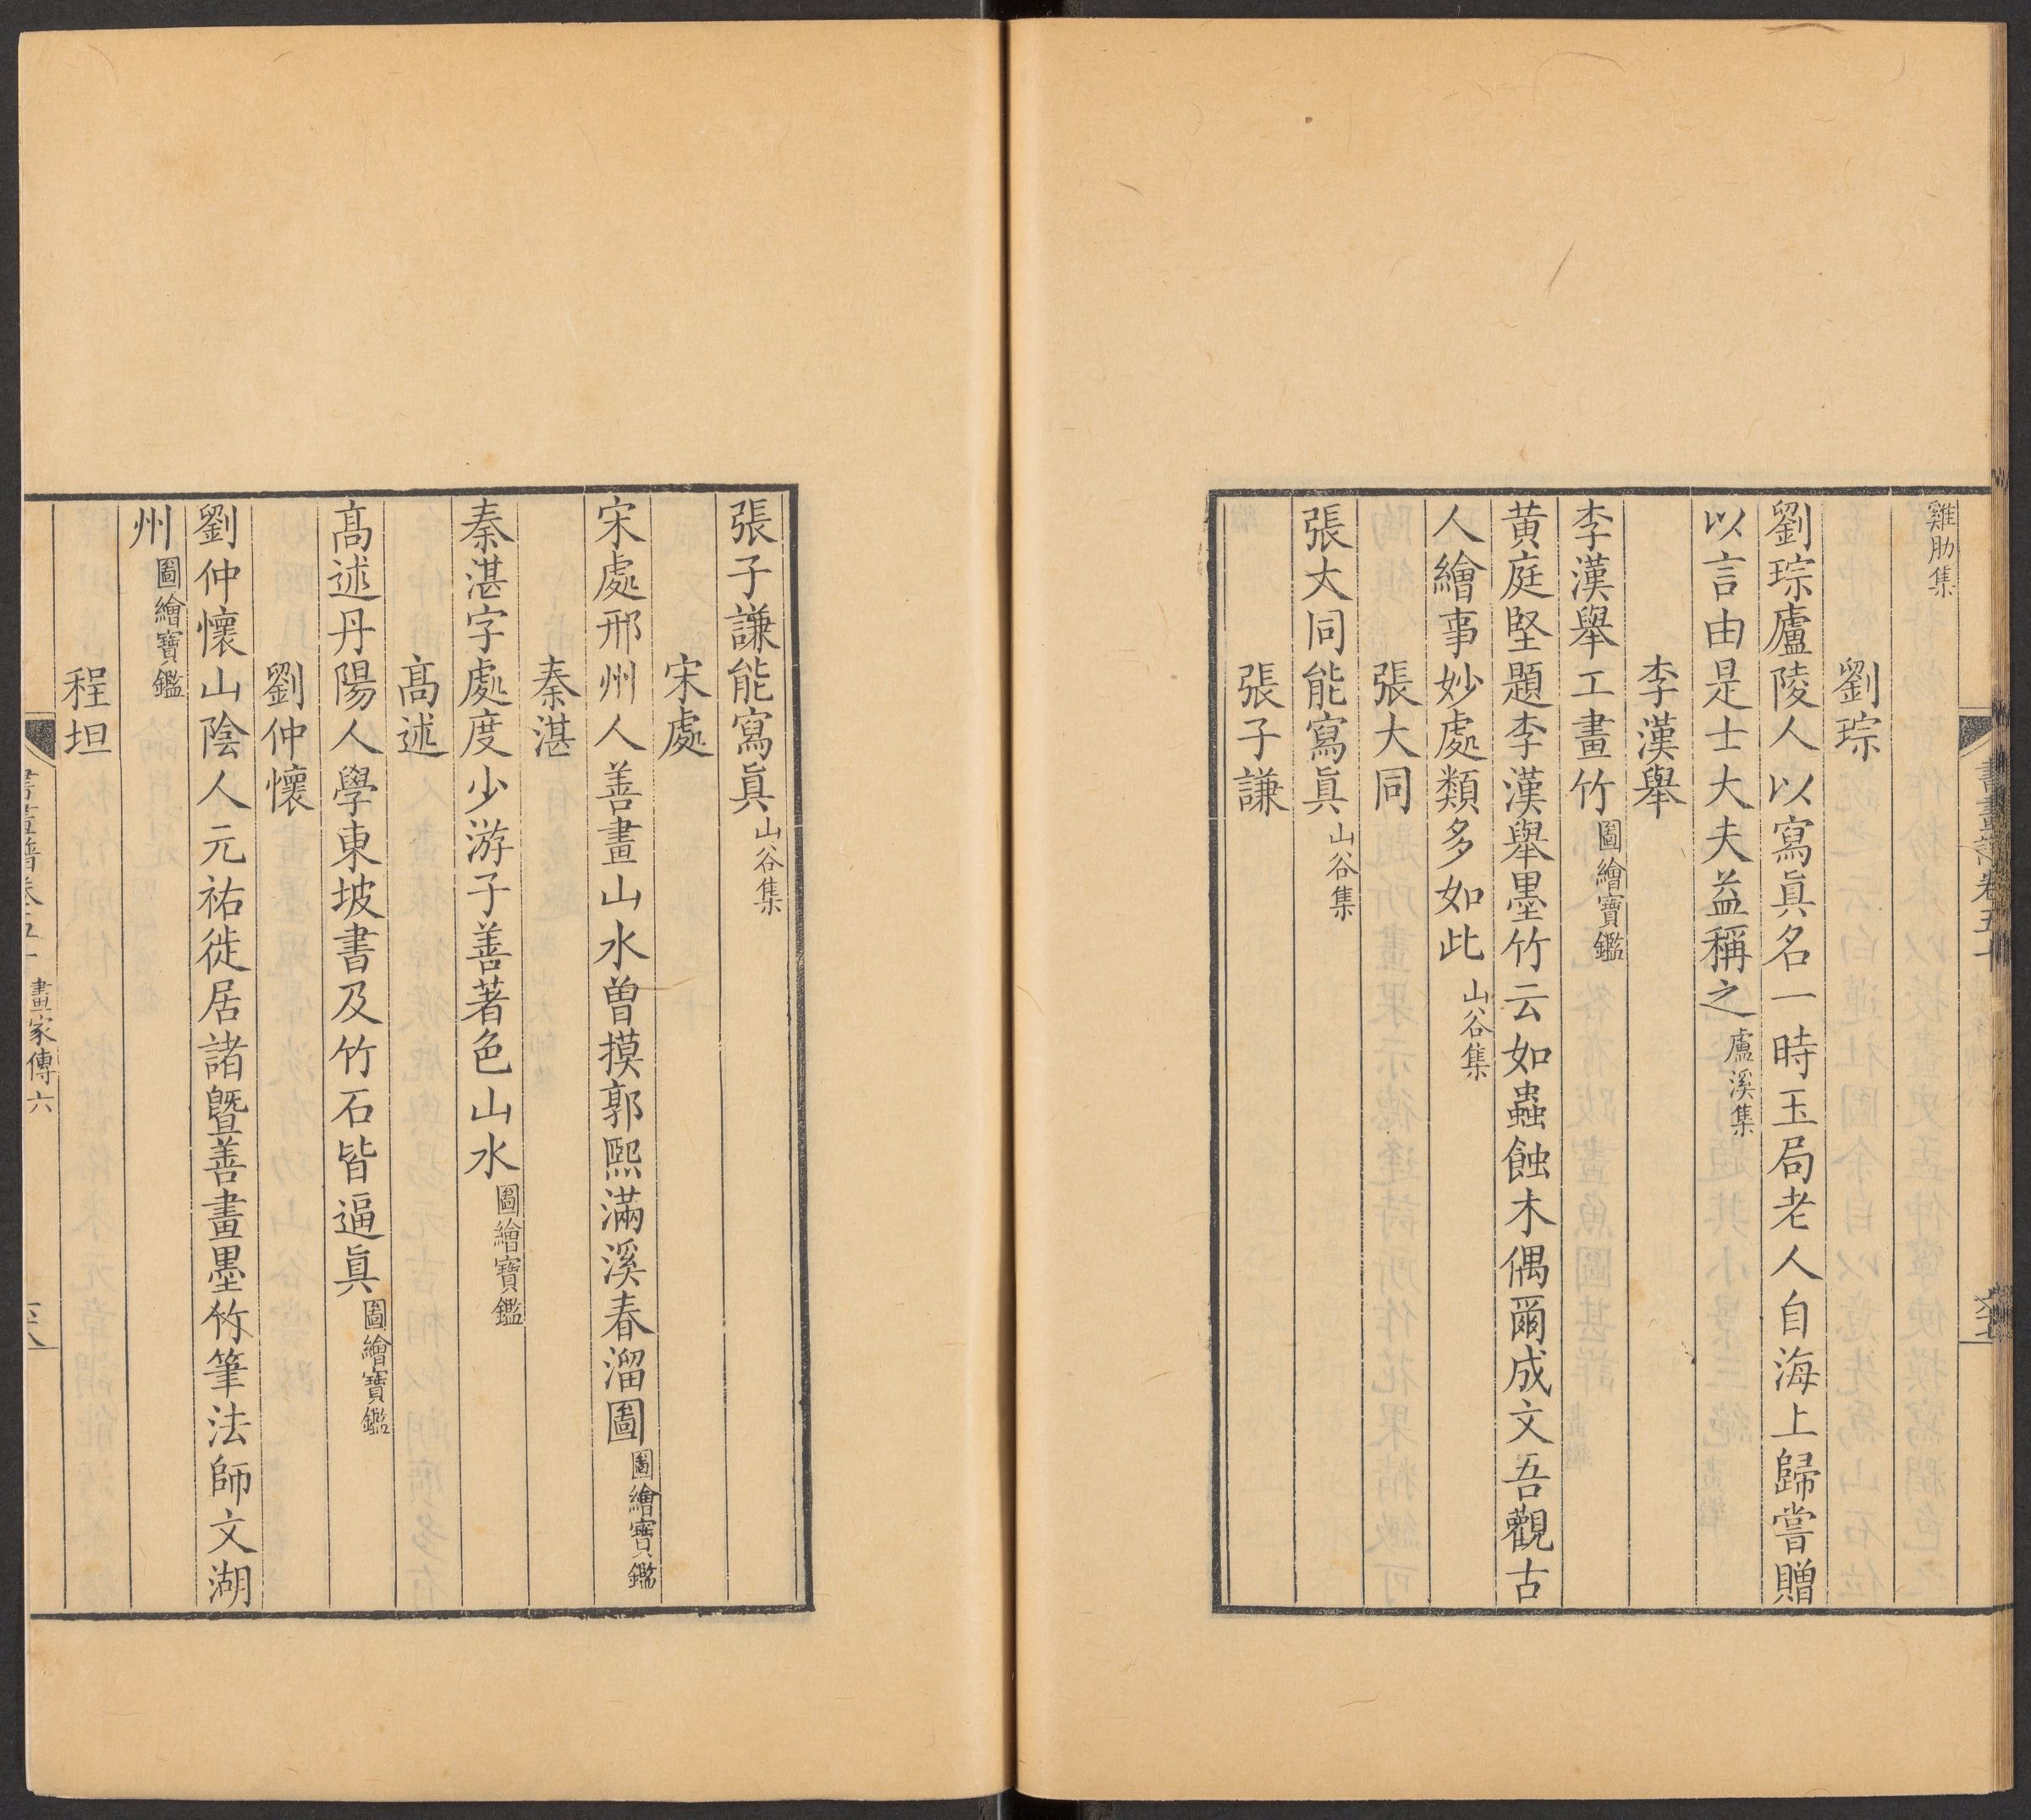 雞肋集
劉琮
劉琮廬陵人以寫眞名一時玉局老人自海上歸嘗贈
以言由是士大夫益稱之盧溪集
李漢舉
李漢舉工畫竹圖繪寶鑑
黄庭堅題李漢舉墨竹云如蟲蝕木偶爾成文吾觀古
人繪事妙處類多如此山谷集
張大同
張大同能寫眞山谷集
張子謙
張子謙能寫眞山谷集
宋處
宋處邢州人善畫山水曾摸郭熙滿溪春溜圖圖繪寶鑑
秦湛
秦湛字處度少游子善著色山水圖繪寶鑑
髙述
髙述丹陽人學東坡書及竹石皆逼眞圖繪寶鑑
劉仲懷
劉仲懷山陰人元祐徙居諸曁善畫墨竹筆法師文湖
州圖繪寶鑑
程坦
書畫譜卷五十 畫家傳六